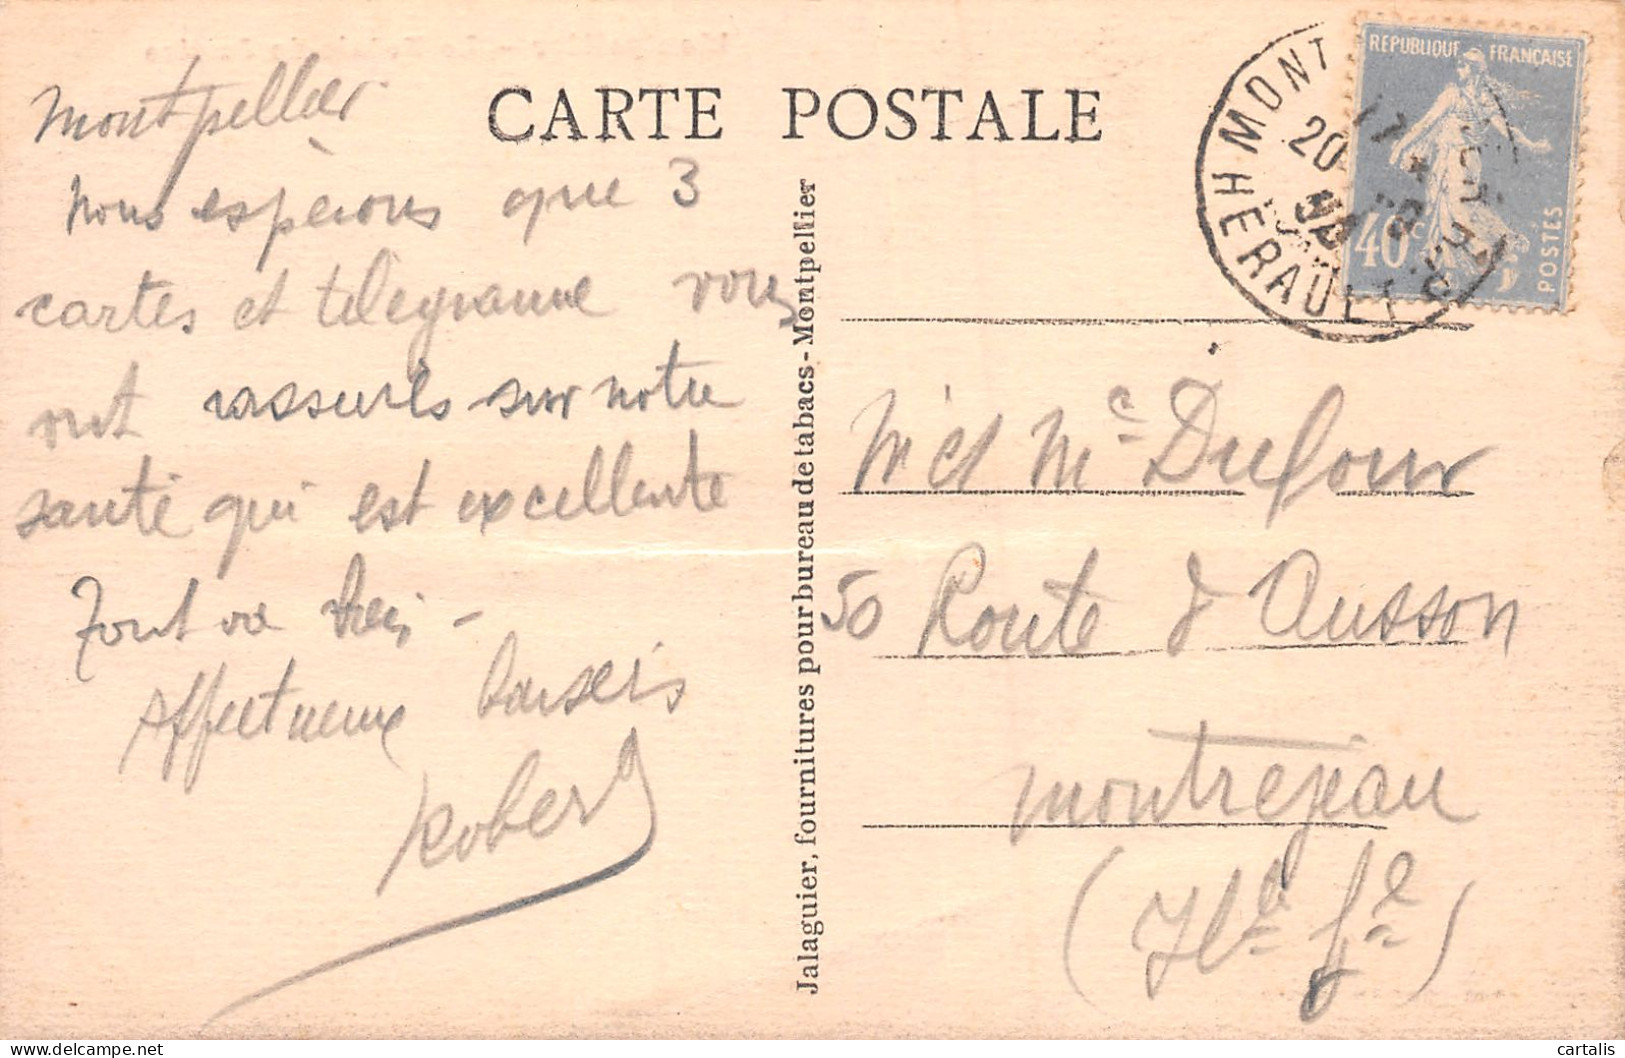 CARTE POSTALE
Montpellier
Nous espérons que 3
cartes et télégramme vous
ont rassurés sur notre
santé qui est excellente
Tout va bien -
Affectueux baisers
Robert
Jalaguier, fournitures pour bureau de tabacs - Montpellier
REPUBLIQUE FRANÇAISE
40c
POSTES
MONT
20
HERAULT
Mr et Me Dufour
50 Route d'Ausson
Montrejeau
(Hte Gne)
cartalis